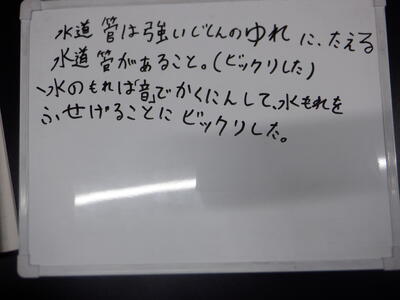 水道管は強いじしんのゆれに、たえる
水道管があること。(ビックリした)
水のもれは「音」でかくにんして、水もれを
ふせげることにビックリした。